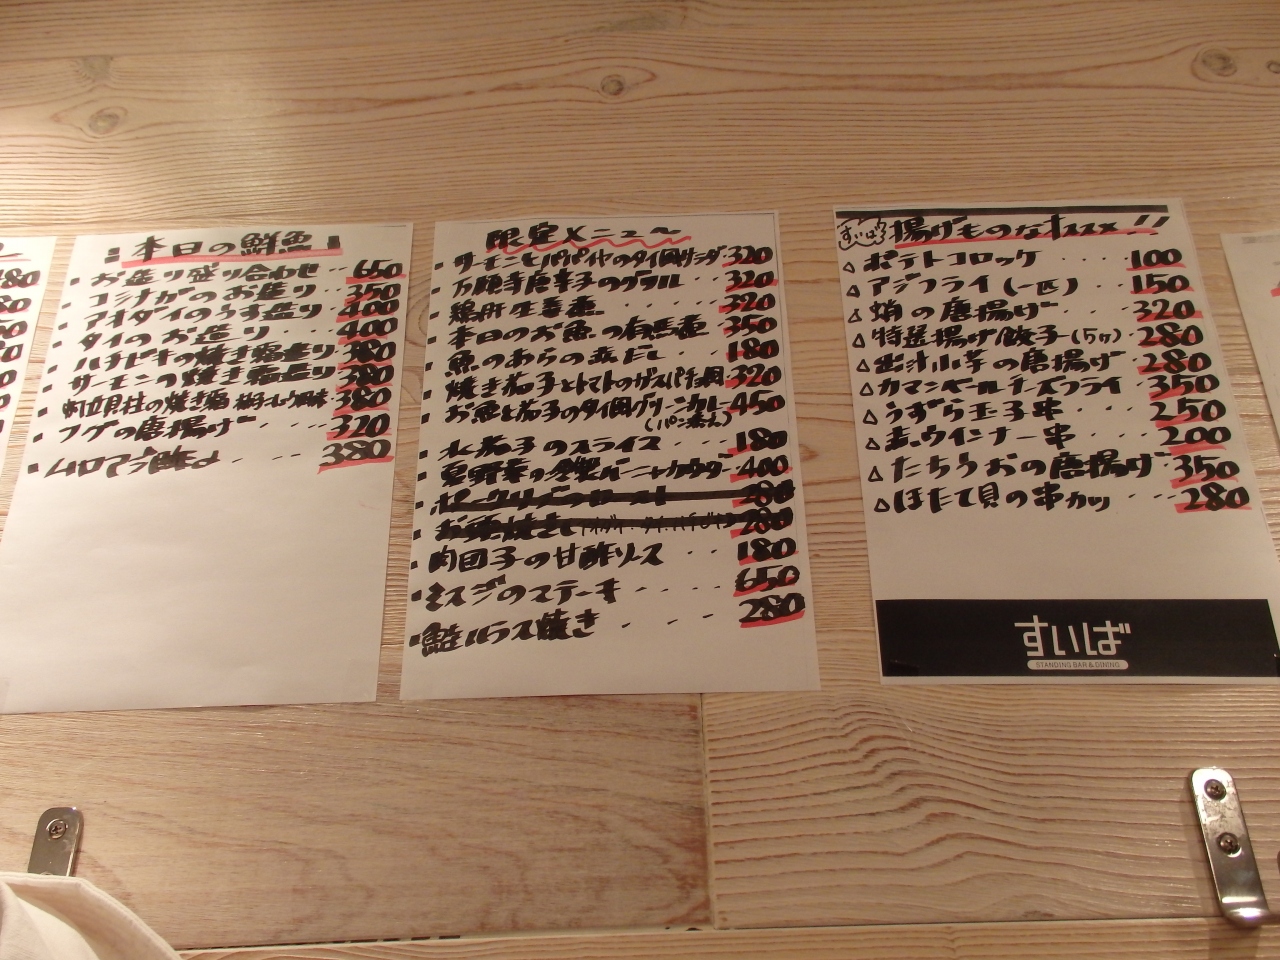 80
本日の鮮魚
・お造り盛り合わせ・・650
・コシナガのお造り・350
・アオダイのうす造り・400
・タイのお造り・・400
・ハチビキの焼き霜造り・380
・サーモンの焼き霜造り・380
・帆立貝柱の焼き霜 柚子こしょう風味・380
・フグの唐揚げ・・・320
・ムロアジ酢〆・・・380
限定メニュ〜
・サーモンとパパイヤのタイ風サラダ・320
・万願寺唐辛子のグリル・・320
・鶏肝生姜煮・・・320
・本日のお魚の有馬煮・350
・魚のあらの煮だし・・180
・焼き茄子とトマトのガスパチョ風・320
・お魚と茄子のタイ風グリーンカレー・450
(パン添え)
・水茄子のスライス・・180
・夏野菜の冷製バーニャカウダー・400
・肉団子の甘酢ソース・・180
・ミスジのステーキ・・・・650
・鮭ハラス焼き・・・280
すいば 揚げものなオススメ!!
△ポテトコロッケ・・・100
△アジフライ(一匹)・・150
△蛸の唐揚げ・・・320
△特選揚げ餃子(5ヶ)・280
△出汁小芋の唐揚げ・280
△カマンベールチーズフライ・350
△うずら玉子串・・・250
△赤ウインナー串・・200
△たちうおの唐揚げ・350
△ほたて貝の串カツ・・・280
すいば
STANDING BAR & DINING